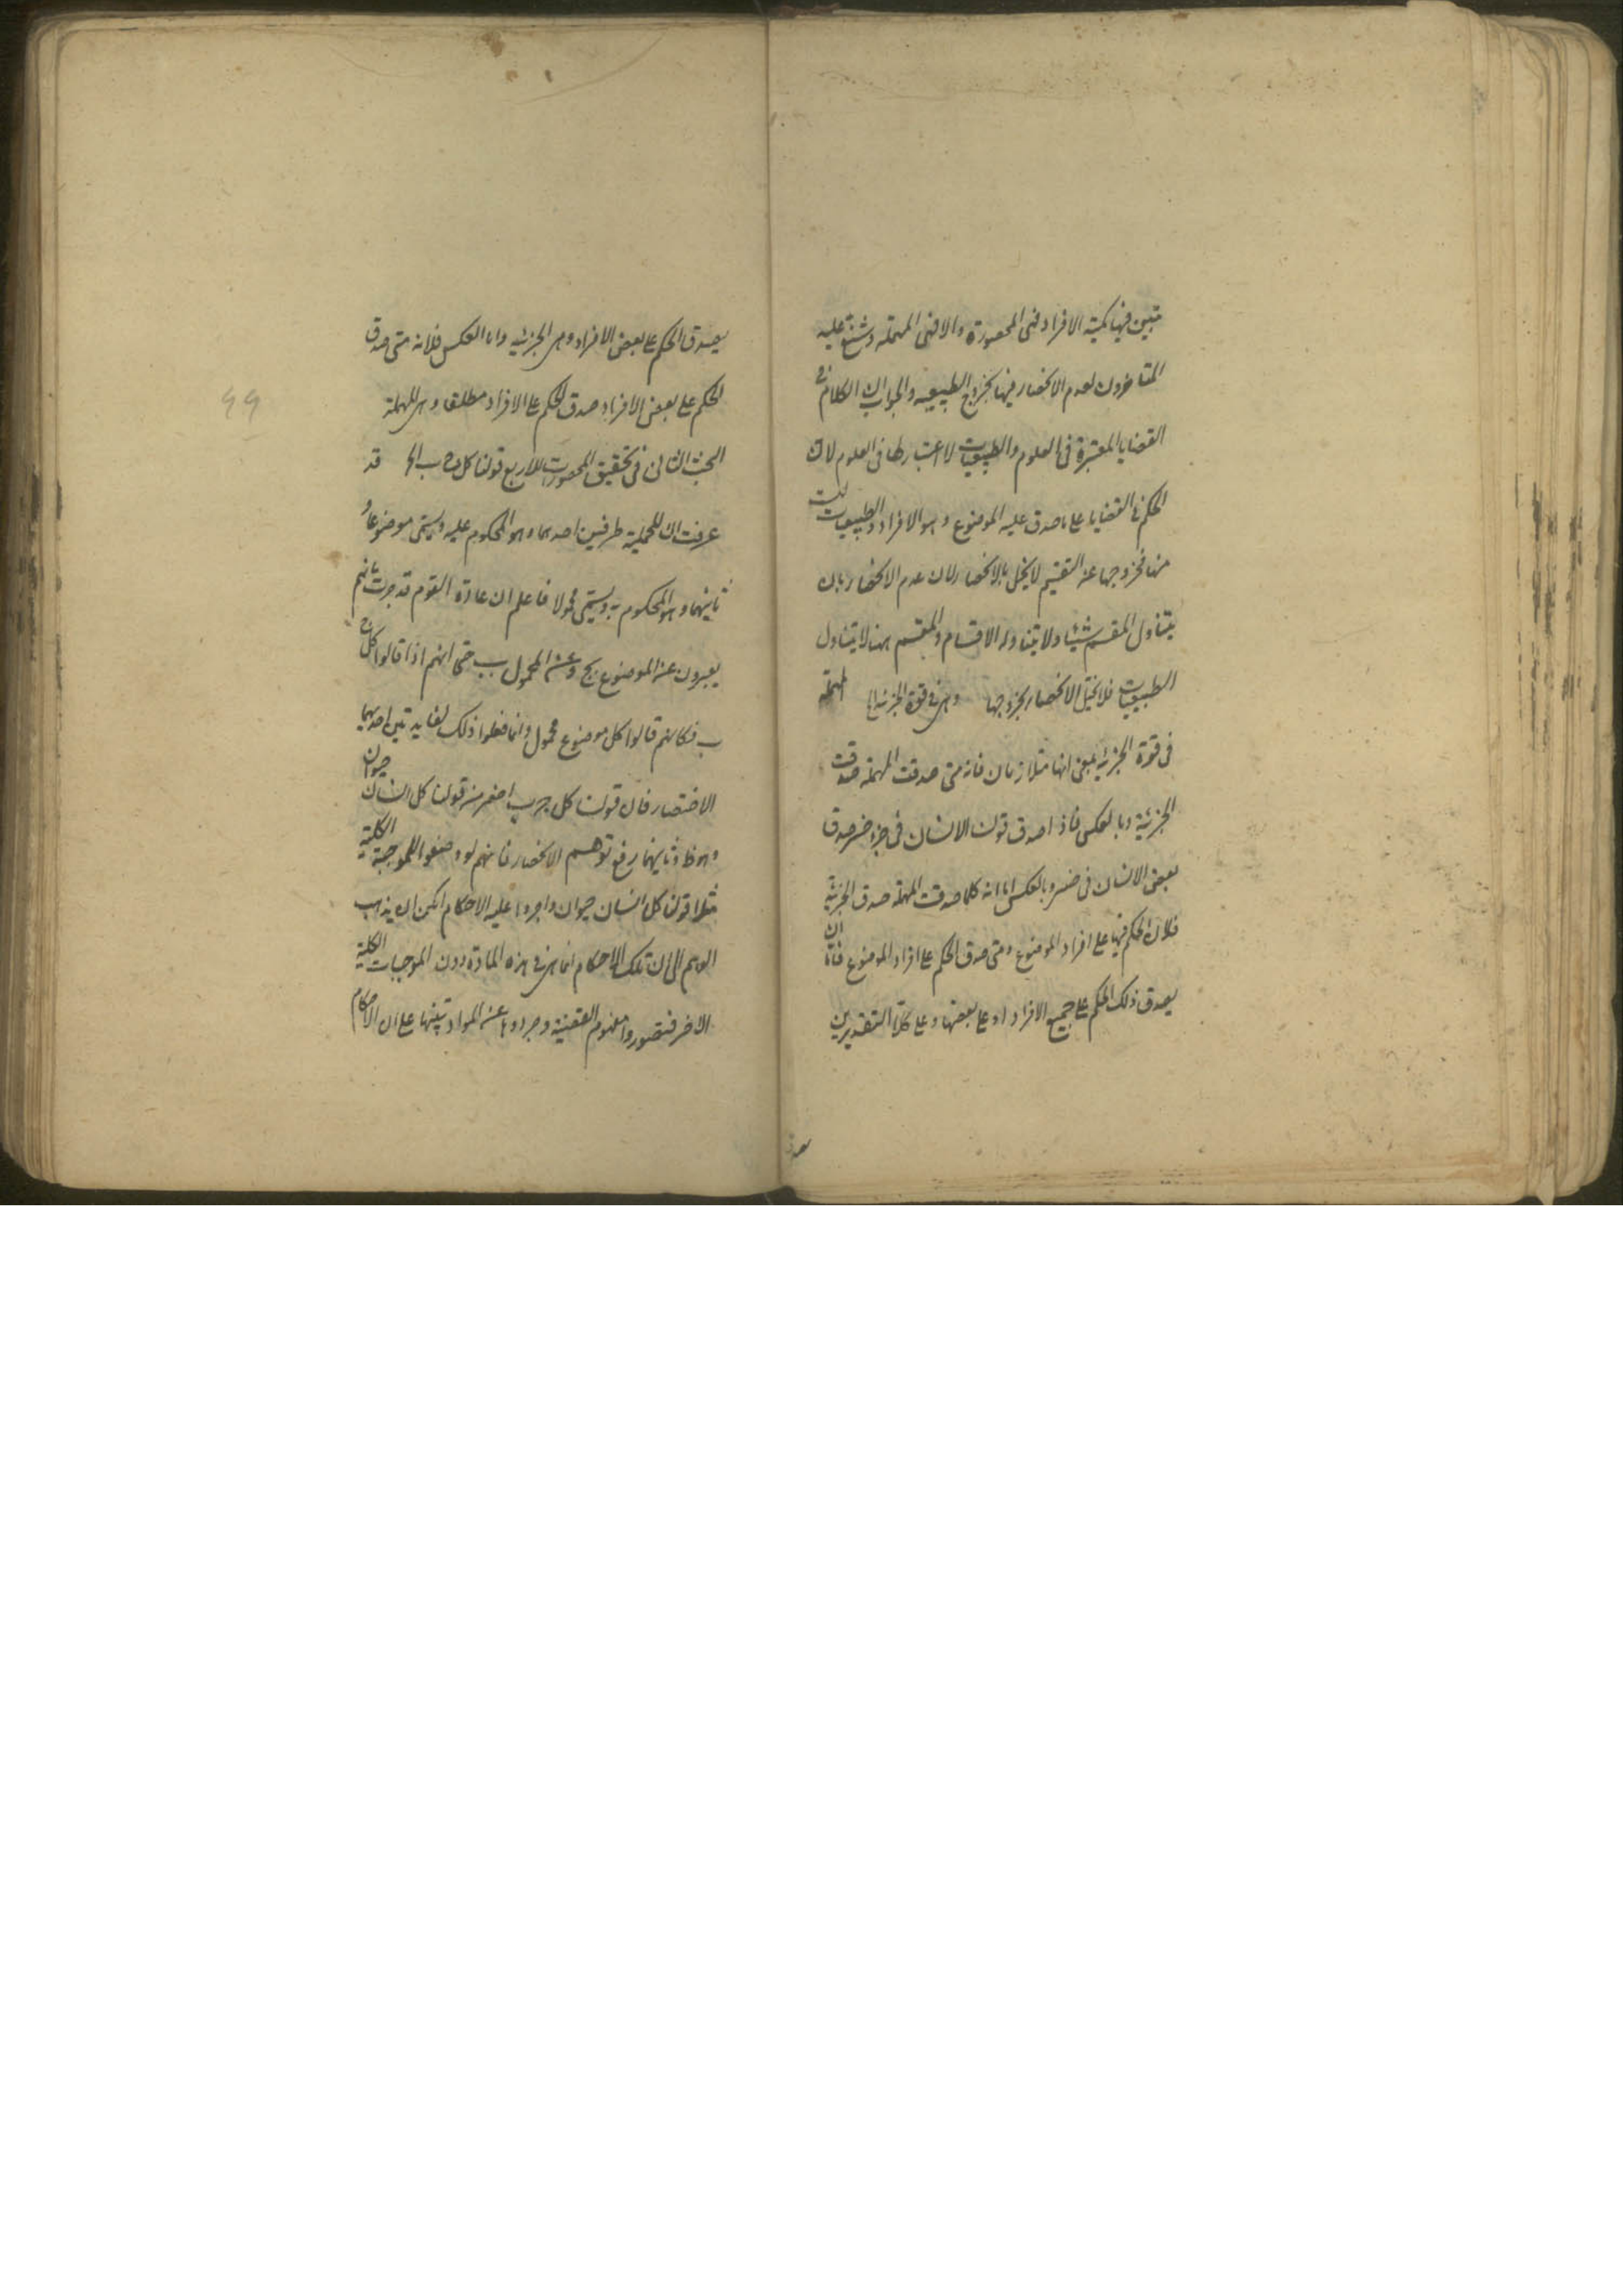 تبين فيها كمية الافراد فهى المحصورة والا فهى المهملة وشنع عليه
المتاخرون لعدم الانحصار فيها بخروج الطبيعية والجواب ان الكلام فى
القضايا المعتبرة فى العلوم والطبيعيات لا اعتبار لها فى العلوم لان
الحكم فى القضايا على ما صدق عليه الموضوع وهو الافراد والطبيعيات ليست
منها فخروجها عن التقسيم لا يخل بالانحصار لان عدم الانحصار بان
يتناول المقسم شيئا ولا يتناوله الاقسام والمقسم ههنا لا يتناول
الطبيعيات فلا يختل الانحصار بخروجها وهى فى قوة الجزئية الخ المهملة
فى قوة الجزئية بمعنى انها متلازمان فانه متى صدقت المهملة صدقت
الجزئية وبالعكس فاذا صدق قولنا الانسان فى خسر صدق
بعض الانسان فى خسر وبالعكس اما انه كلما صدقت المهملة صدق الجزئية
فلان الحكم فيها على افراد الموضوع ومتى صدق الحكم على افراد الموضوع فاما ان
يصدق ذلك الحكم على جميع الافراد او على بعضها وعلى كلا التقديرين
يصدق
يصدق الحكم على بعض الافراد وهى الجزئية واما العكس فلانه متى صدق
الحكم على بعض الافراد صدق الحكم على الافراد مطلقا وهى المهملة
البحث الثانى فى تحقيق المحصورات الاربع قولنا كل ج ب الخ قد
عرفت ان للحملية طرفين احدهما وهو المحكوم عليه ويسمى موضوعا و
ثانيهما وهو المحكوم به ويسمى محمولا فاعلم ان عادة القوم قد جرت بانهم
يعبرون عن الموضوع بج وعن المحمول بب حتى انهم اذا قالوا كل ج
ب فكانهم قالوا كل موضوع محمول وانما فعلوا ذلك لفايدتين احديهما
الاختصار فان قولنا كل ج ب اخصر من قولنا كل انسان حيوان
وهو ظ وثانيهما رفع توهم الانحصار فانهم لو وضعوا للموجبة الكلية
مثلا قولنا كل انسان حيوان واجروا عليه الاحكام امكن ان يذهب
الوهم الى ان تلك الاحكام انما هى فى هذه المادة دون الموجبات الكلية
الاخر فتصوروا مفهوم القضية وجردوها عن المواد تنبيها على ان الاحكام
٩٩